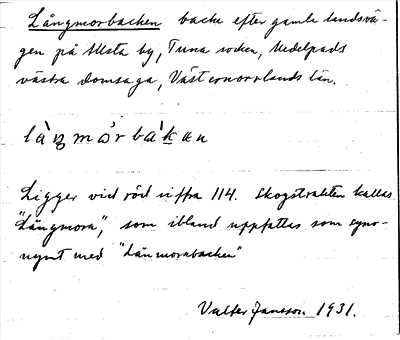 Långmorbacken backe efter gamle landsvä-
gen på Allsta by, Tuna socken, Medelpads
västra domsaga, Västernorrlands län.
làŋmωrbàkan
Ligger vid röd siffra 114. Skogstrakten kallas
"Långmora", som ibland uppfattas som syno-
nymt med "Långmorabacken"
Valter Jansson 1931.